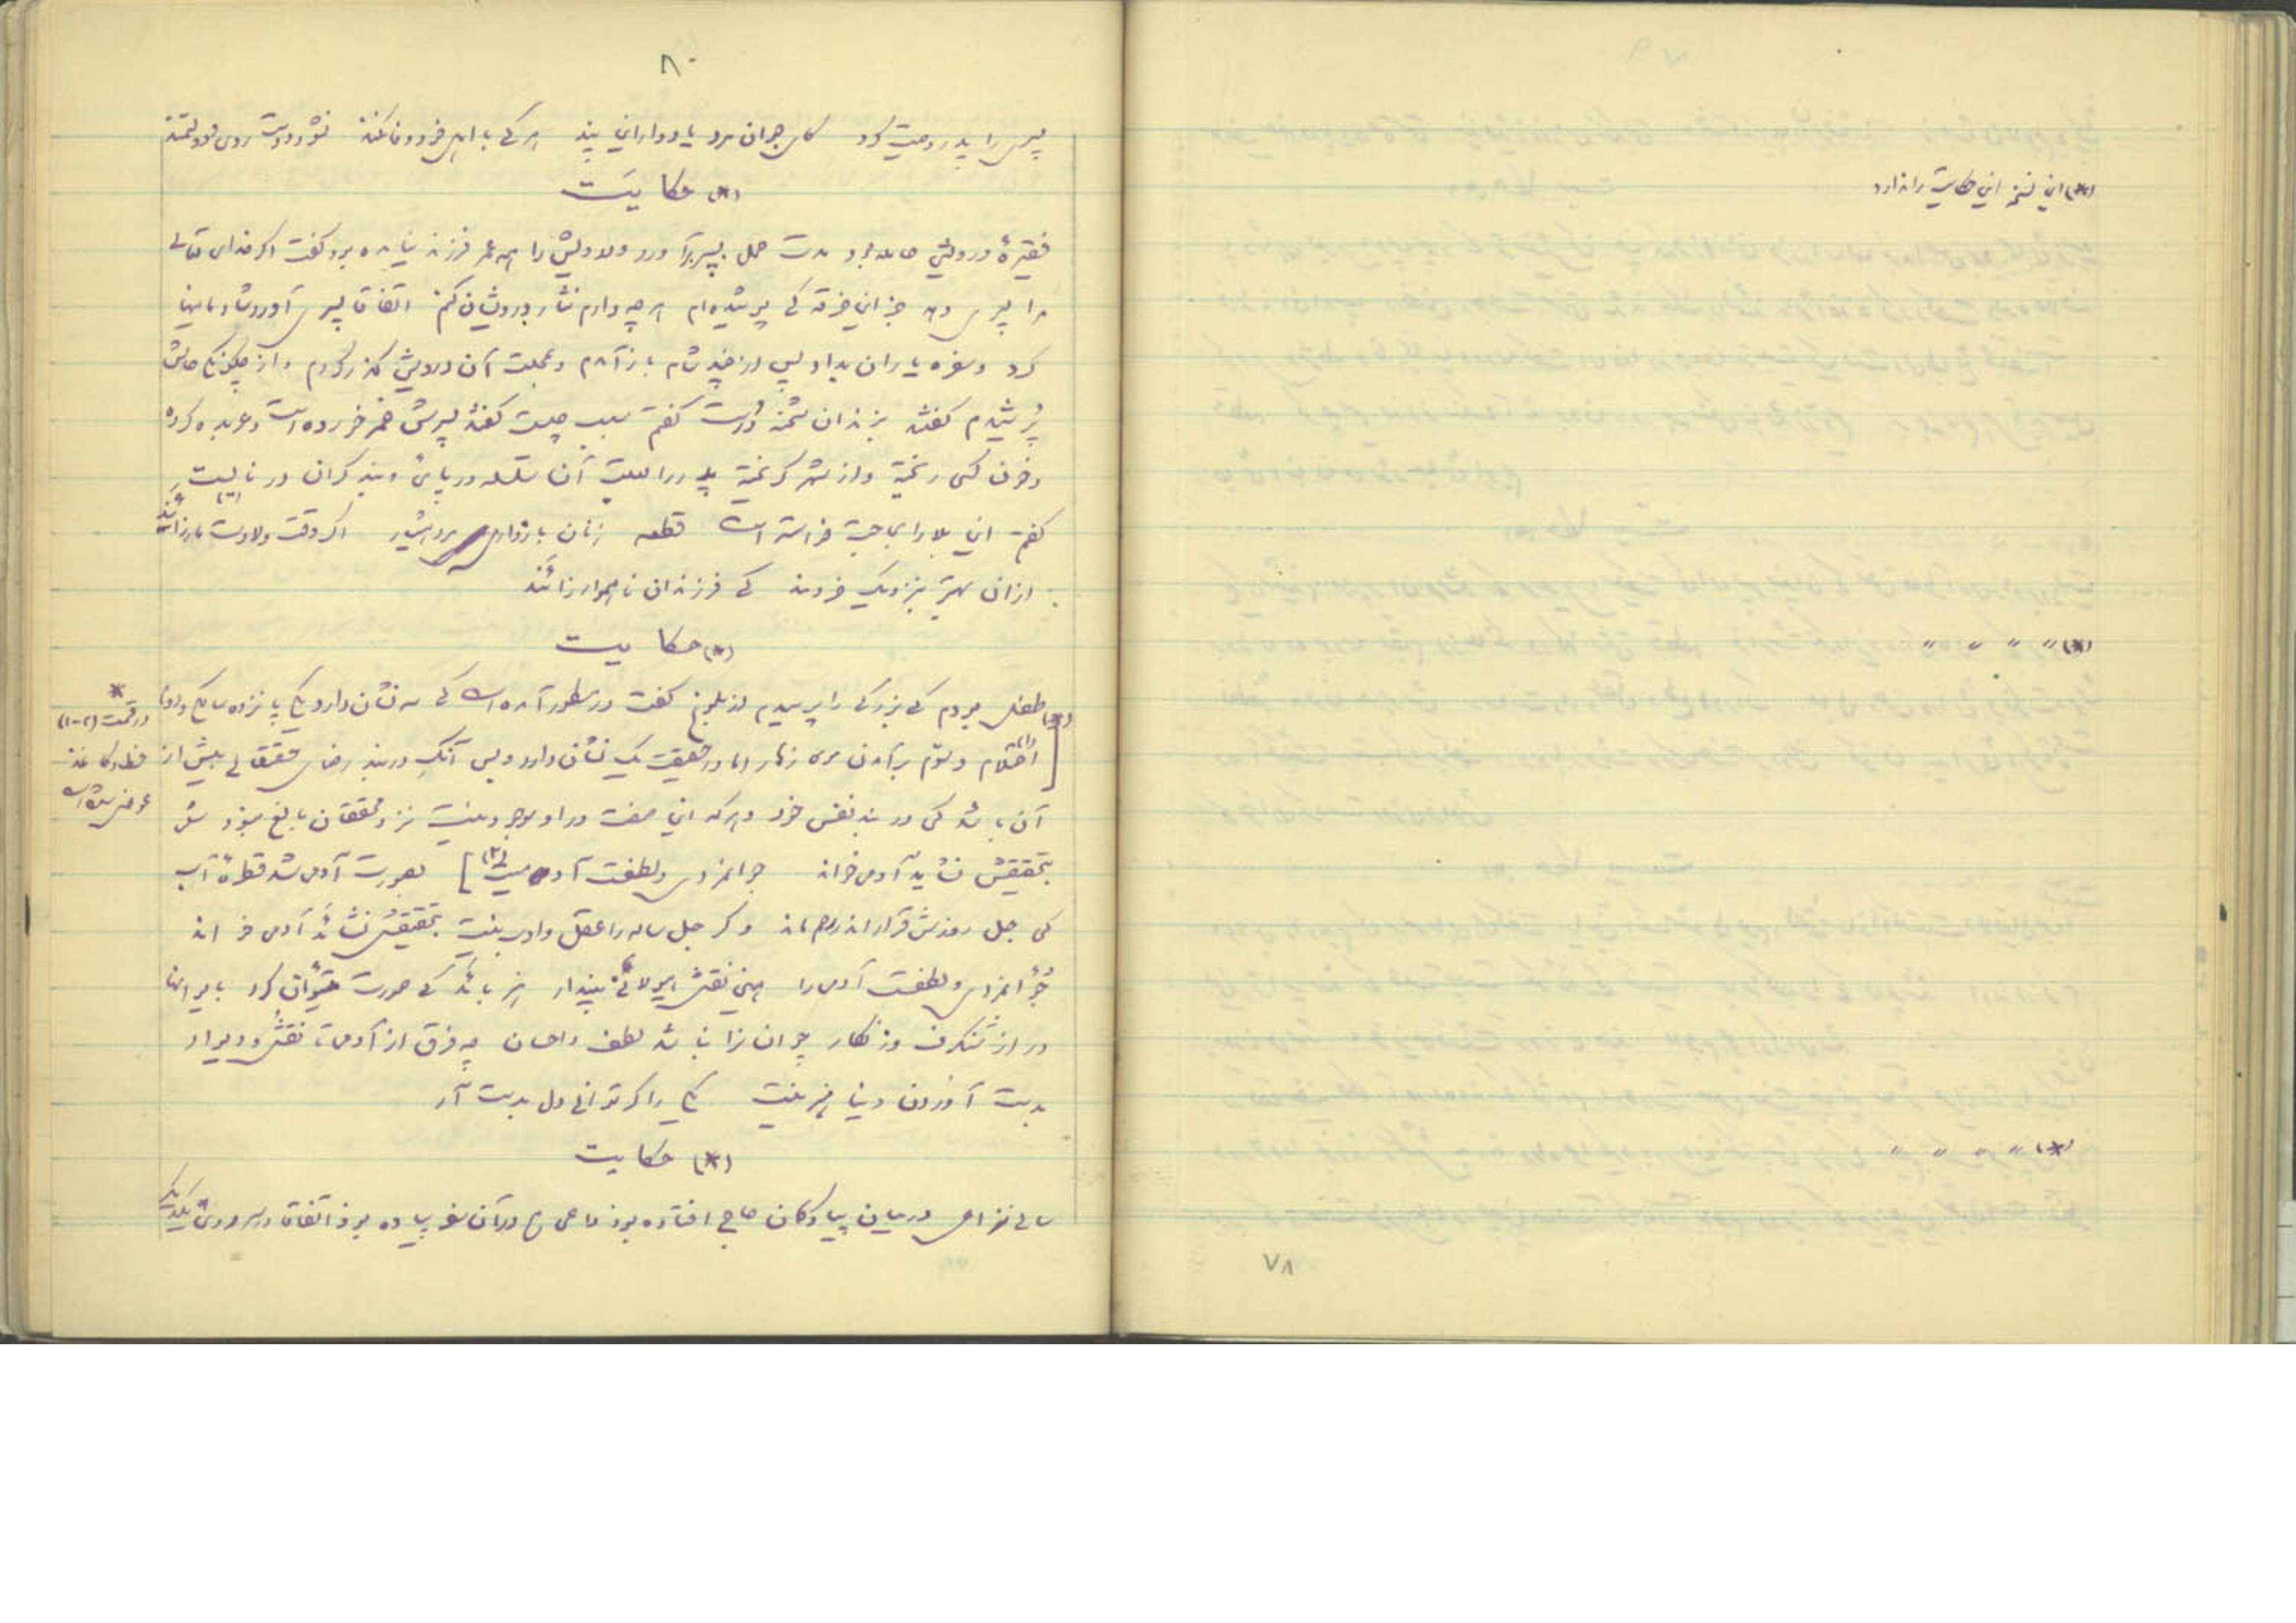 (*) این نسخه این حکایت را ندارد
(*) " " " "
(*) " " " "
۷۸
۸۰
پسری را پدر وصیت کرد کای جوان مرد یاد دار این پند هر کی با اهل خود وفا نکند نشود دوست روی دولتمند
(*) حکایت
فقیرهٔ درویشی حامله بود مدت حمل بسر آورد و درویش را همه عمر فرزند نیامده بود گفت اگر خدای تعالی
مرا پسری دهد جز این خرقه کی پوشیده‌ام هر چه دارم نثار درویشان کنم اتفاقا پسر آورد شادمانیها
کرد و سفره یاران بداد پس از چند سال باز آمدم و بمحلت آن درویش گذر کردم و از چگونگی حالش
پُرسیدم گفتند بزندان شحنه دَرست گفتم سبب چیست گفتند پسرش خمر خورده است و عربده کرده
و خون کسی ریخته و از شهر گریخته پدر را بعلت آن سلسله در پای و بند گران در
گفتم این بلا را بحاجت خواسته است قطعه زنان باردار ای مرد هشیار اگر وقت ولادت مار زایند
از آن بهتر بنزدیک خردمند کی فرزندان ناهموار زائند
(*) حکایت
(*) طفل بودم کی بزرگی را پرسیدم از بلوغ گفت در مسطور آمده است کی سه نشان دارد یکی پانزده سالگی و دوم
احتلام و سوّم برآمدن موی زهار اما در حقیقت یک نشان دارد و بس آنک در بند رضای حقتعالی بیش از
آن باشد کی در بند نفس خود و هر که این صفت در او موجود نیست نزد محققان بالغ نبود
بتحقیقش نشاید آدمی خواند جوانمردی و لطفست آدمیت (۲)] بصورت آدمی شد قطرهٔ آب
کی چل روزش قرار اندر رحم ماند وگر چل ساله را عقل و ادب نیست بتحقیقش نشاید آدمی خواند
جُوانمردی و لطفست آدمی را همین نقش هیولائی مپندار هنر باید کی صورت میتوان کرد بایوانها
در از شنگرف و زنگار چو انسان را نباشد لطف و احسان چه فرق از آدمی تا نقش دیوار
بدست آوردن دنیا هنر نیست یکی را گر توانی دل بدست آر
(*) حکایت
سالی نزاعی در میان پیادگان حاجی افتاده بود داعی هم در آن سفر پیاده بود اتفاقا در سر و روی یکدیگر
*
در قسمت (۱-۲)
خط و کاغذ
عوض شده است